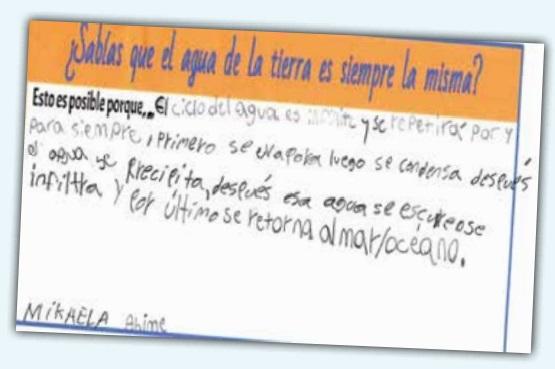 ¿Sabías que el agua de la tierra es siempre la misma?
Esto es posible porque... El ciclo del agua es y se repetirá por y
para siempre, Primero se evapora luego se condensa después
el agua se precipita, después esa agua se escurre o se
infiltra y por último se retorna al mar/océano.
MIKAELA